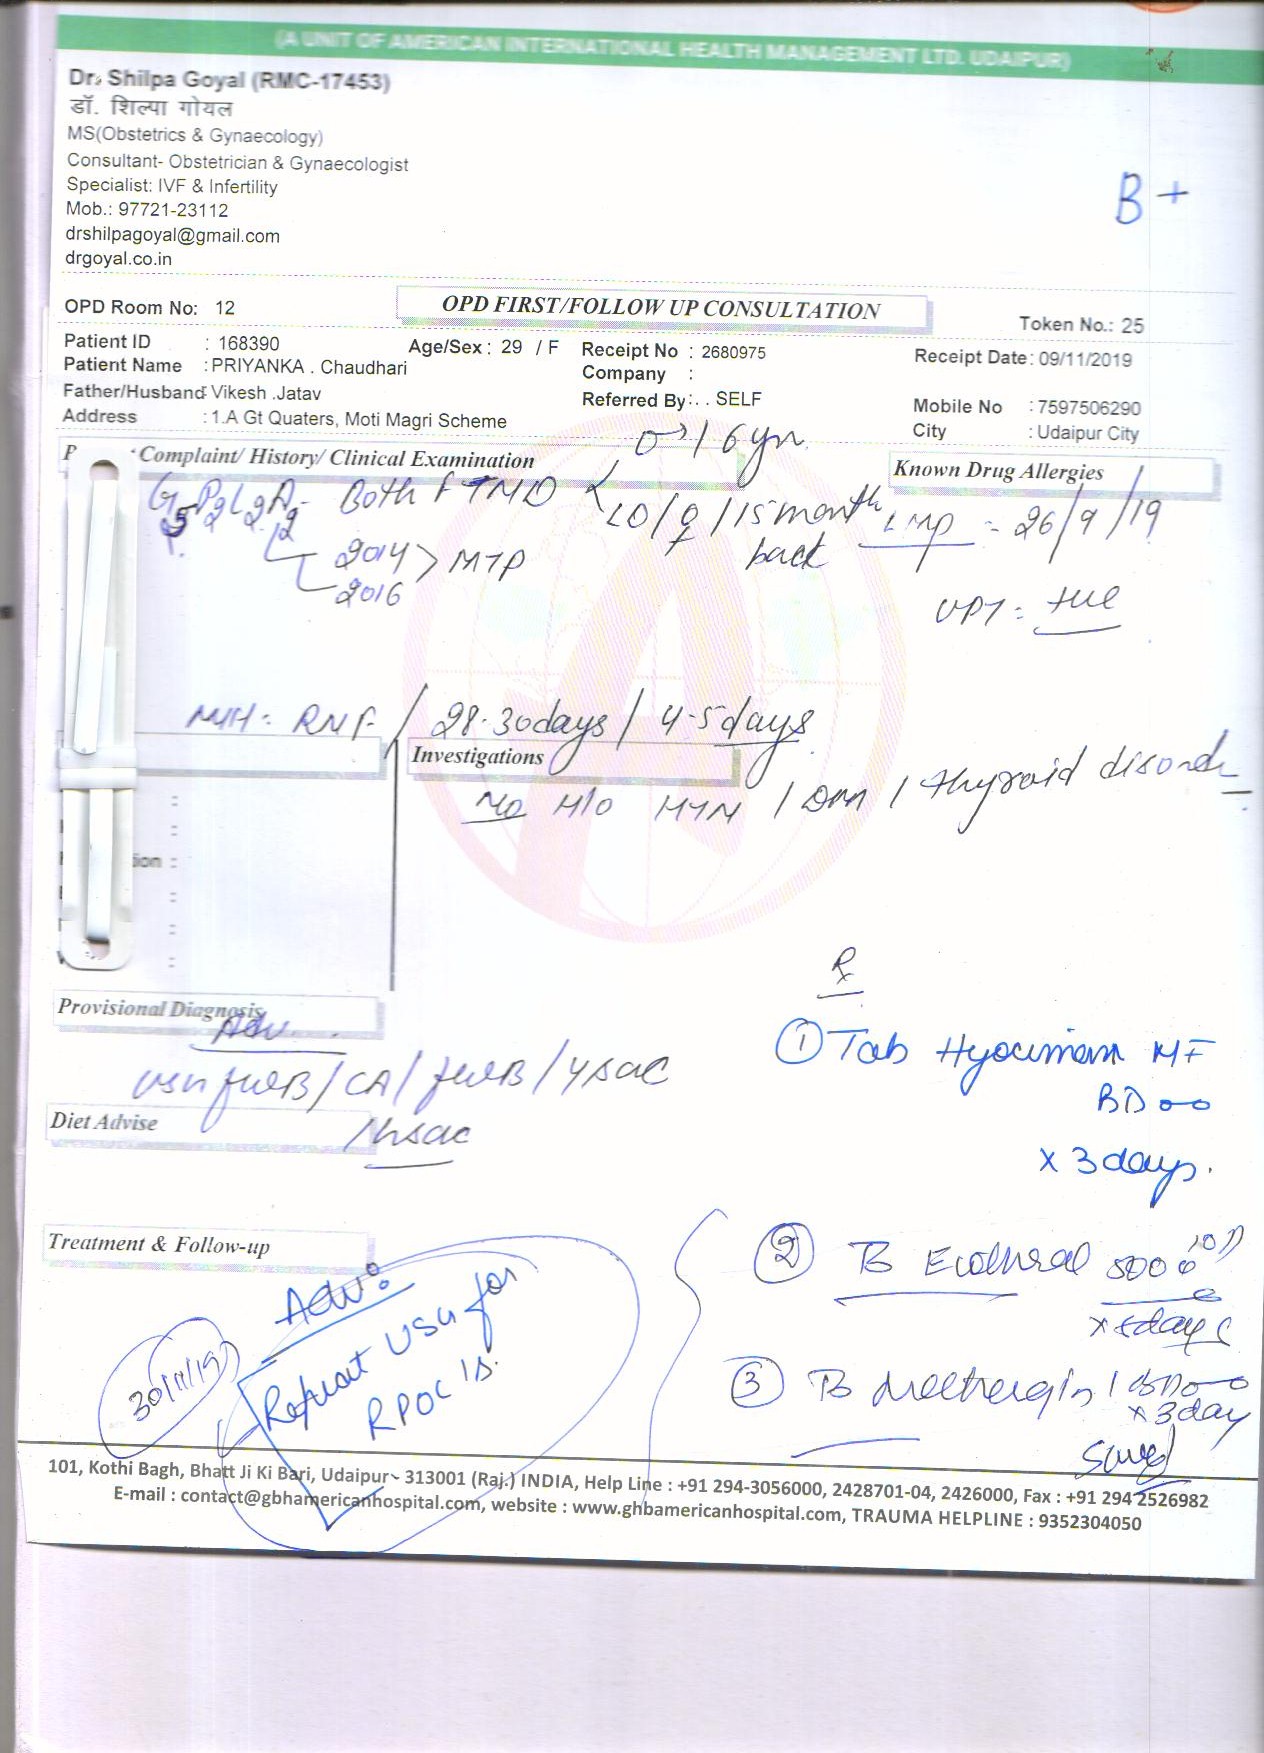 (A UNIT OF AMERICAN INTERNATIONAL HEALTH MANAGEMENT LTD. UDAIPUR)
Dr. Shilpa Goyal (RMC-17453)
डॉ. शिल्पा गोयल
MS(Obstetrics & Gynaecology)
Consultant- Obstetrician & Gynaecologist
Specialist: IVF & Infertility
Mob.: 97721-23112
drshilpagoyal@gmail.com
drgoyal.co.in
B+
OPD Room No: 12
OPD FIRST/FOLLOW UP CONSULTATION
Token No.: 25
Patient ID : 168390 Age/Sex : 29 / F Receipt No : 2680975 Receipt Date : 09/11/2019
Patient Name : PRIYANKA . Chaudhari Company :
Father/Husband : Vikesh .Jatav Referred By : . . SELF Mobile No : 7597506290
Address : 1.A Gt Quaters, Moti Magri Scheme City : Udaipur City
Complaint/ History/ Clinical Examination
Known Drug Allergies
6 yr.
G5P2L2A2 - Both FTND LD/♀/15 month back
LMP - 26/9/19
2014 > MTP
2016
UPT : +ve
M/H : RNF / 28-30 days / 4-5 days
Investigations
No H/O HTN / DM / thyroid disorder
tion :
Rx
Provisional Diagnosis
Adv
① Tab MF
BD
x 3 days.
Diet Advise
Treatment & Follow-up
②
③
x 3 day
Adv:
Repeat USG for
RPOC's
30/11/19
101, Kothi Bagh, Bhatt Ji Ki Bari, Udaipur- 313001 (Raj.) INDIA, Help Line : +91 294-3056000, 2428701-04, 2426000, Fax : +91 294 2526982
E-mail : contact@gbhamericanhospital.com, website : www.ghbamericanhospital.com, TRAUMA HELPLINE : 9352304050